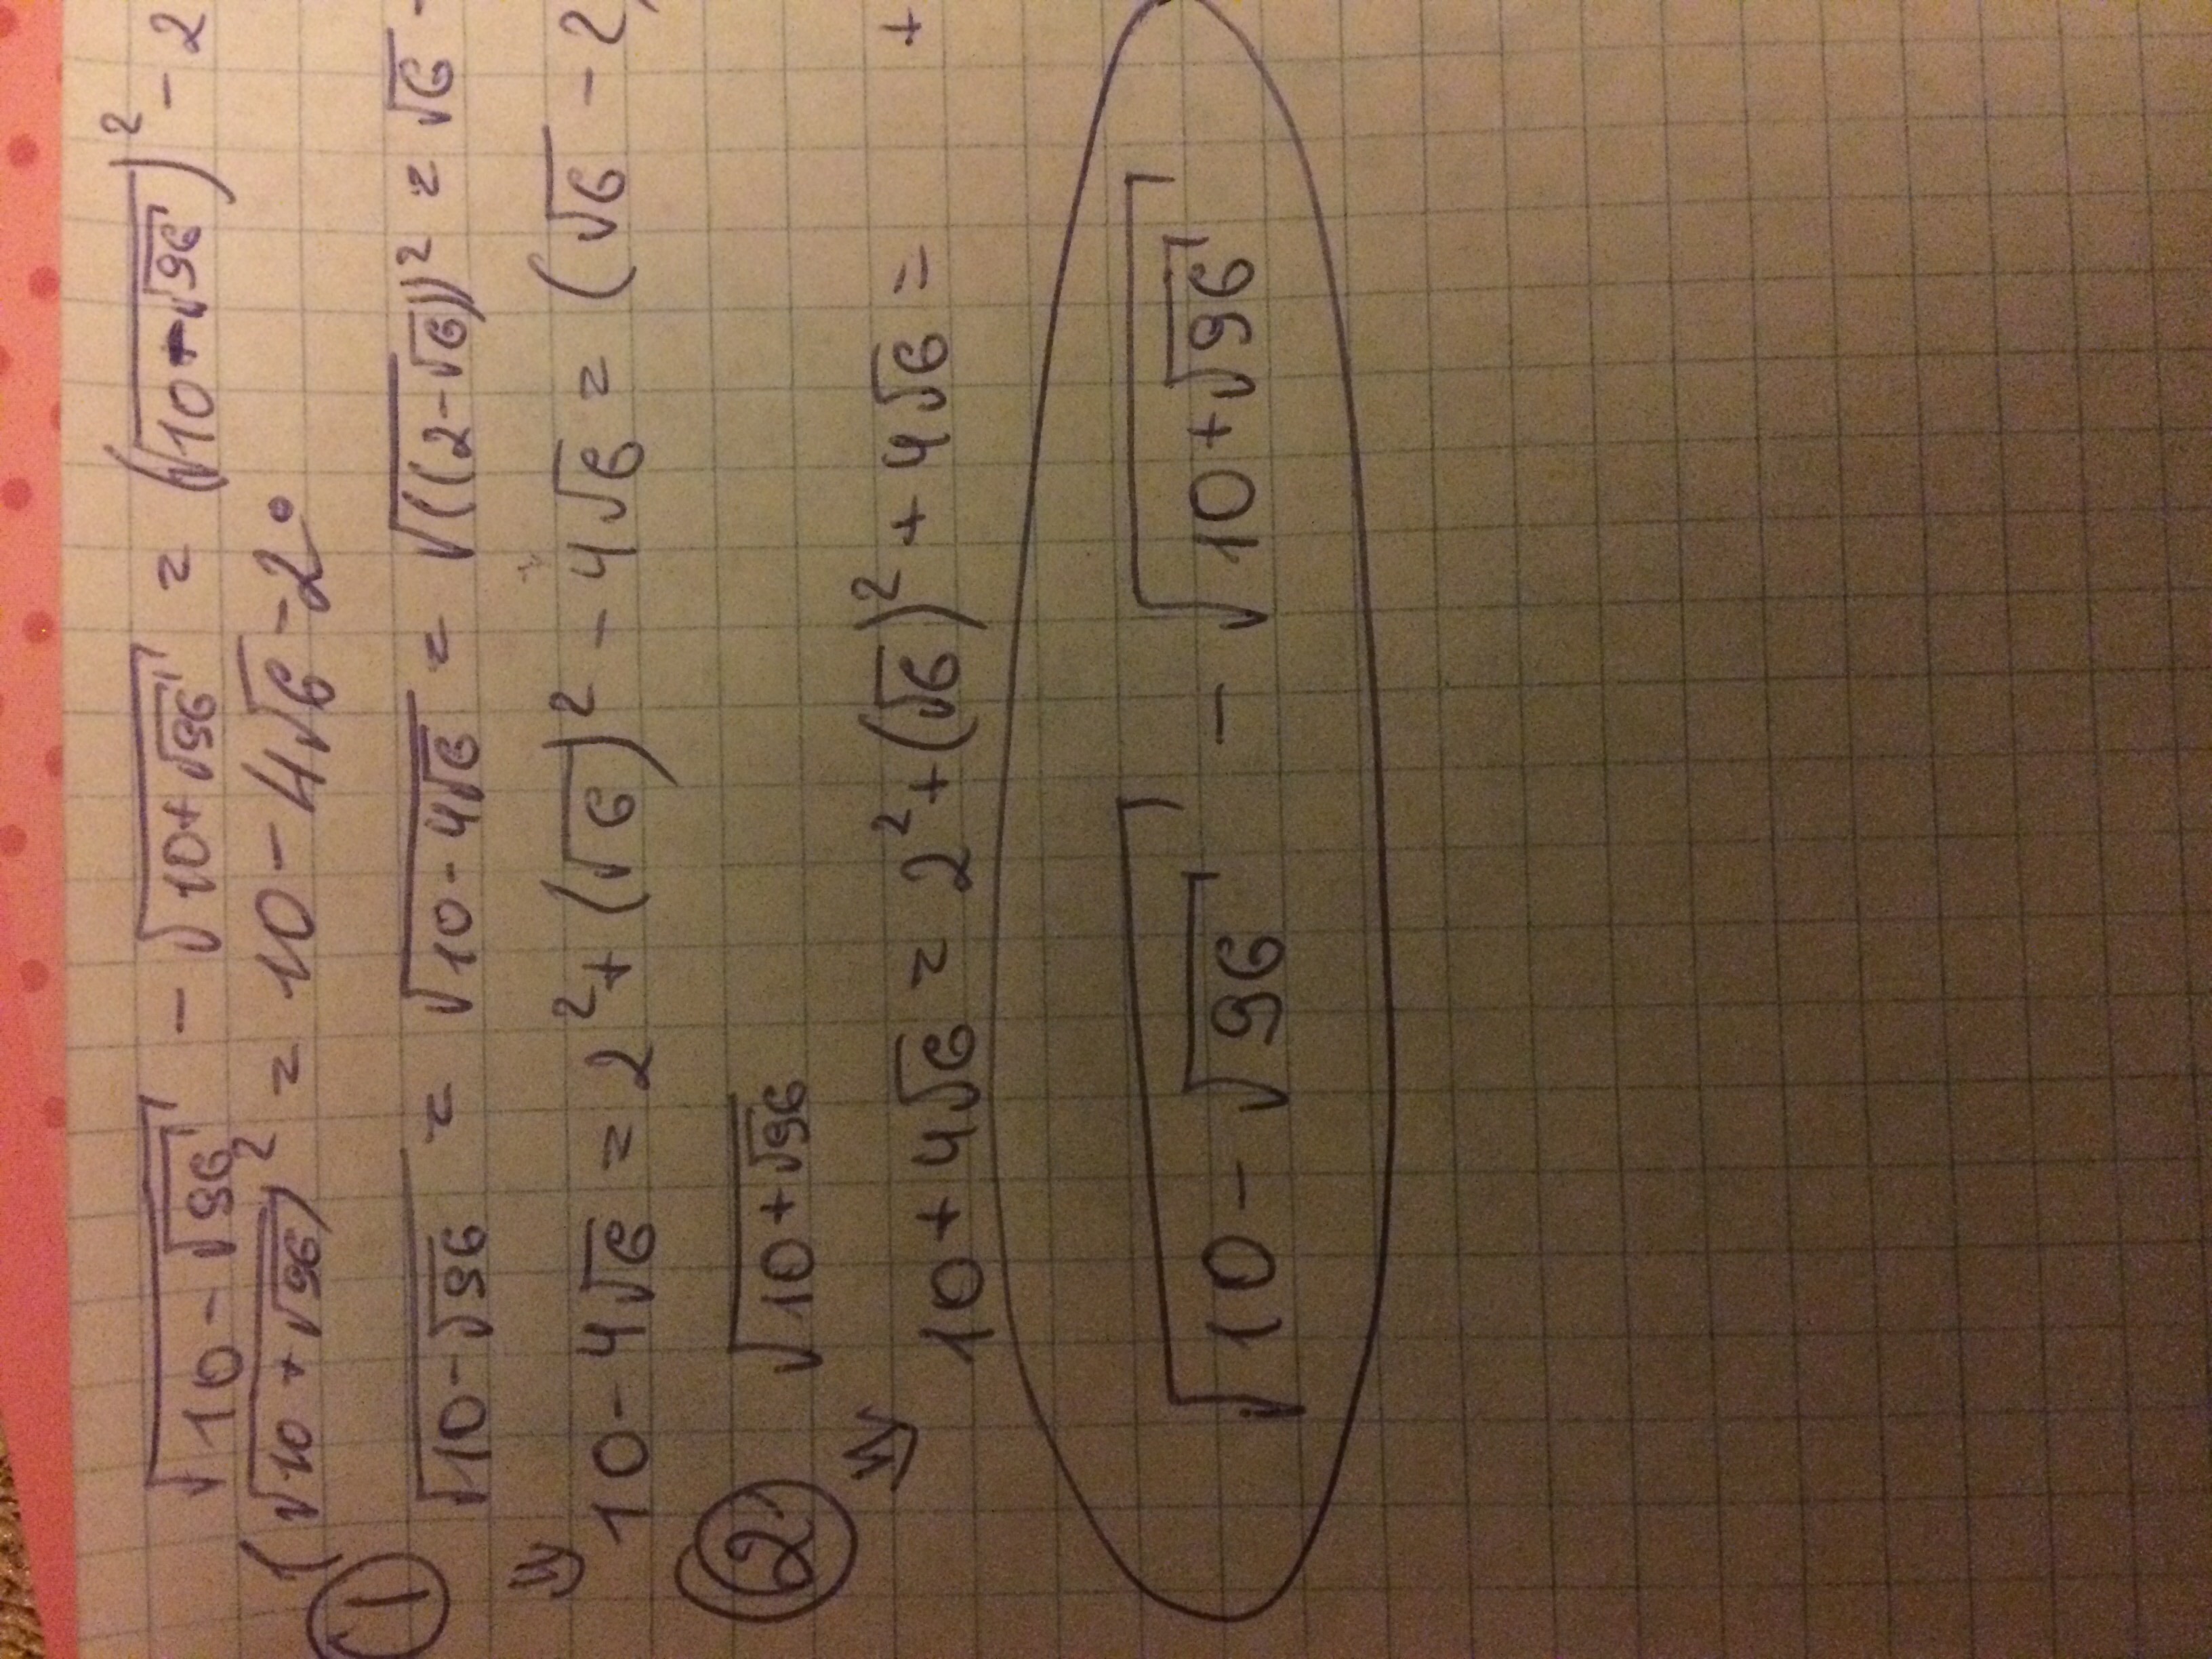 √(10-√96) - √(10+√96) = (√(10+√96))² - 2
(√(10+√96))² = 10-4√6-2·
① √(10-√96) = √(10-4√6) = √((2-√6))² = √6 -
⇒ 10-4√6 = 2²+(√6)²-4√6 = (√6-2)
② √(10+√96)
⇒ 10+4√6 = 2²+(√6)²+4√6 = +
√(10-√96) - √(10+√96)